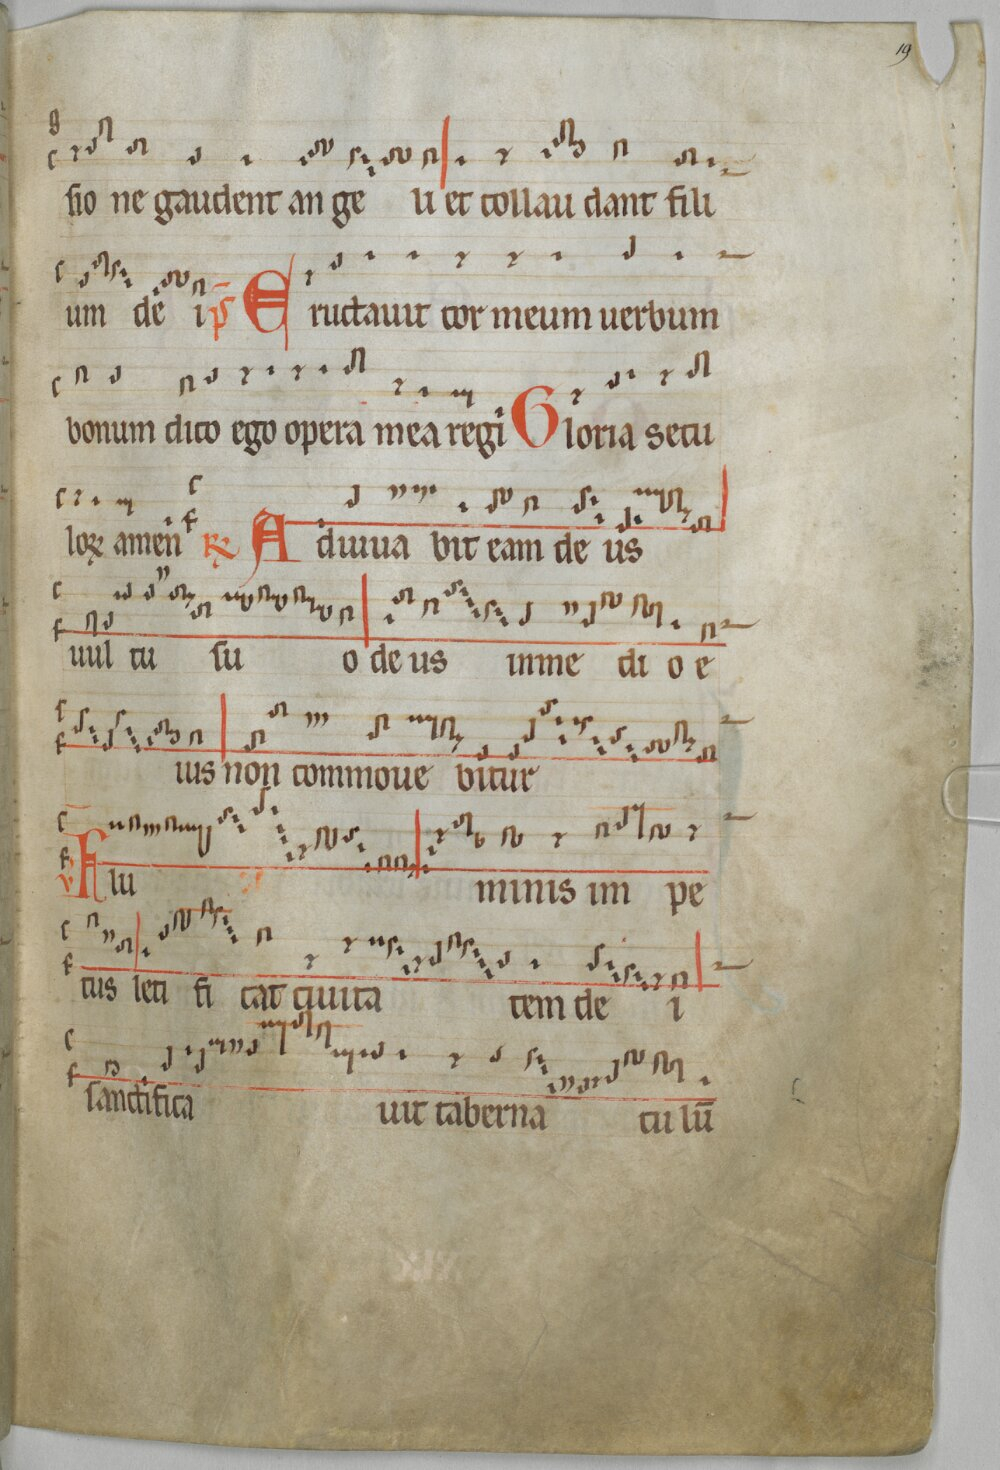 19
sio ne gaudent an ge li et collau dant fili
um de i ps Eructauit cor meum uerbum
bonum dico ego opera mea regi Gloria secu
loꝝ amen ℟ Adiuua bit eam de us
uul tu su o de us inme di o e
ius non commoue bitur
v Flu minis im pe
tus leti fi cat ciuita tem de i
sanctifica uit taberna cu lū